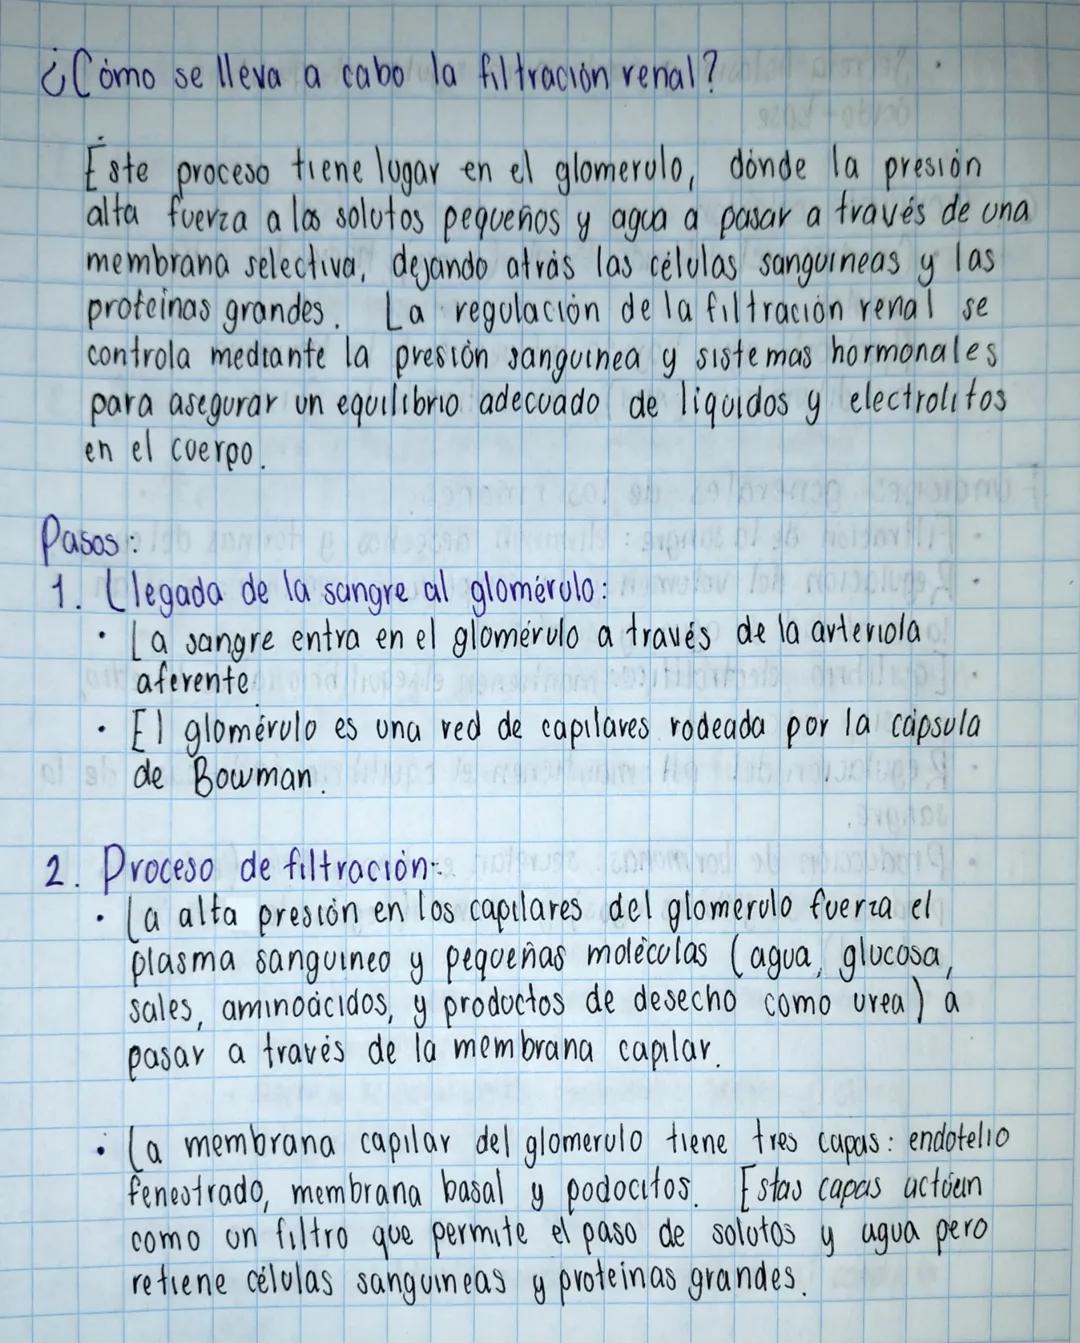 ¿Cómo se lleva a cabo la filtración renal?
Éste proceso tiene lugar en el glomerulo, dónde la presión
alta fuerza a los solutos pequeños y agua a pasar a través de una
membrana selectiva, dejando atrás las células sanguineas y las
proteinas grandes. La regulación de la filtración renal se
controla mediante la presión sanguinea y sistemas hormonales
para asegurar un equilibrio adecuado de liquidos y electrolitos
en el cuerpo.
Pasos:
1. Llegada de la sangre al glomérulo:
• La sangre entra en el glomérulo a través de la arteriola
aferente
• El glomérulo es una red de capilares rodeada por la cápsula
de Bowman.
2. Proceso de filtración:
• La alta presión en los capilares del glomerulo fuerza el
plasma sanguineo y pequeñas moléculas (agua, glucosa,
sales, aminoácidos, y productos de desecho como urea) a
pasar a través de la membrana capilar.
• La membrana capilar del glomerulo tiene tres capas: endotelio
fenestrado, membrana basal y podocitos. Estas capas actúan
como un filtro que permite el paso de solutos y agua pero
retiene células sanguineas y proteinas grandes.